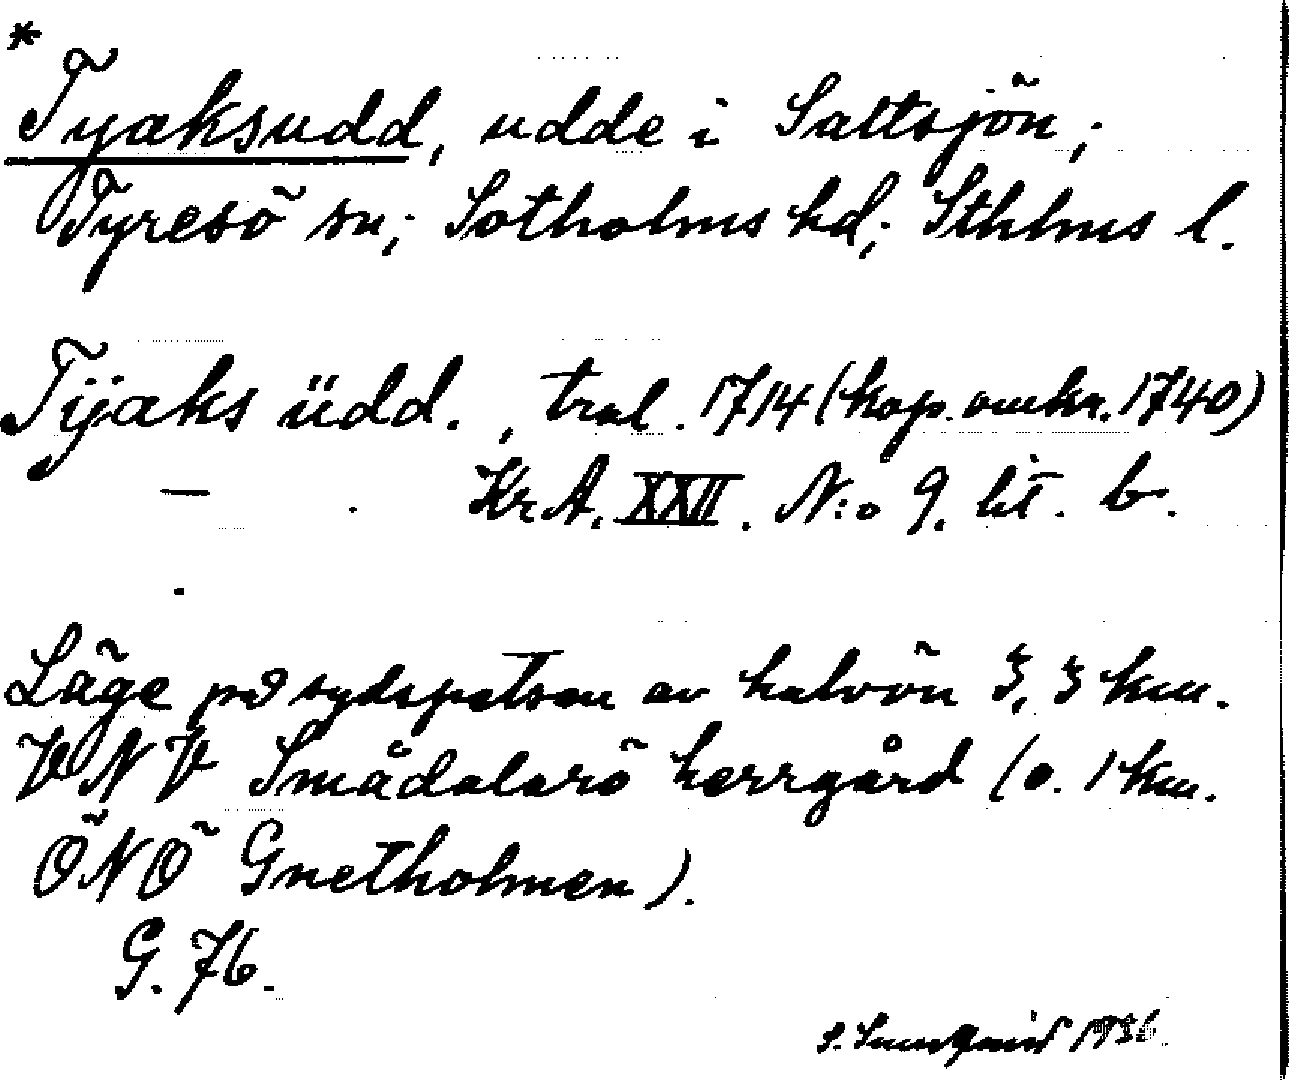 *
Tyaksudd, udde i Saltsjön;
Tyresö sn; Sotholms hd; Sthlms l.
Tÿaks üdd., tral. 1714 (kop. omkr. 1740)
— KrA. XXII. N:o 9. lit. b.
Läge på sydspetsen av halvön 3,3 km.
VNV Smådalarö herrgård (o. 1 km.
ÖNÖ Gnetholmen).
G. 76.
S. Sundqvist 1936